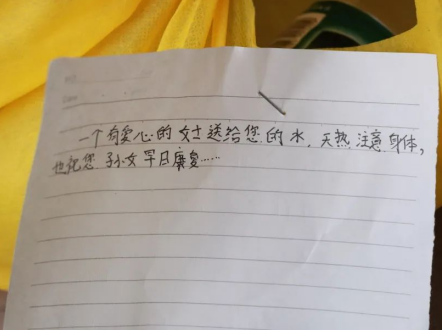 一个有爱心的女士送给您的水，天热注意身体，
也祝您孙女早日康复……